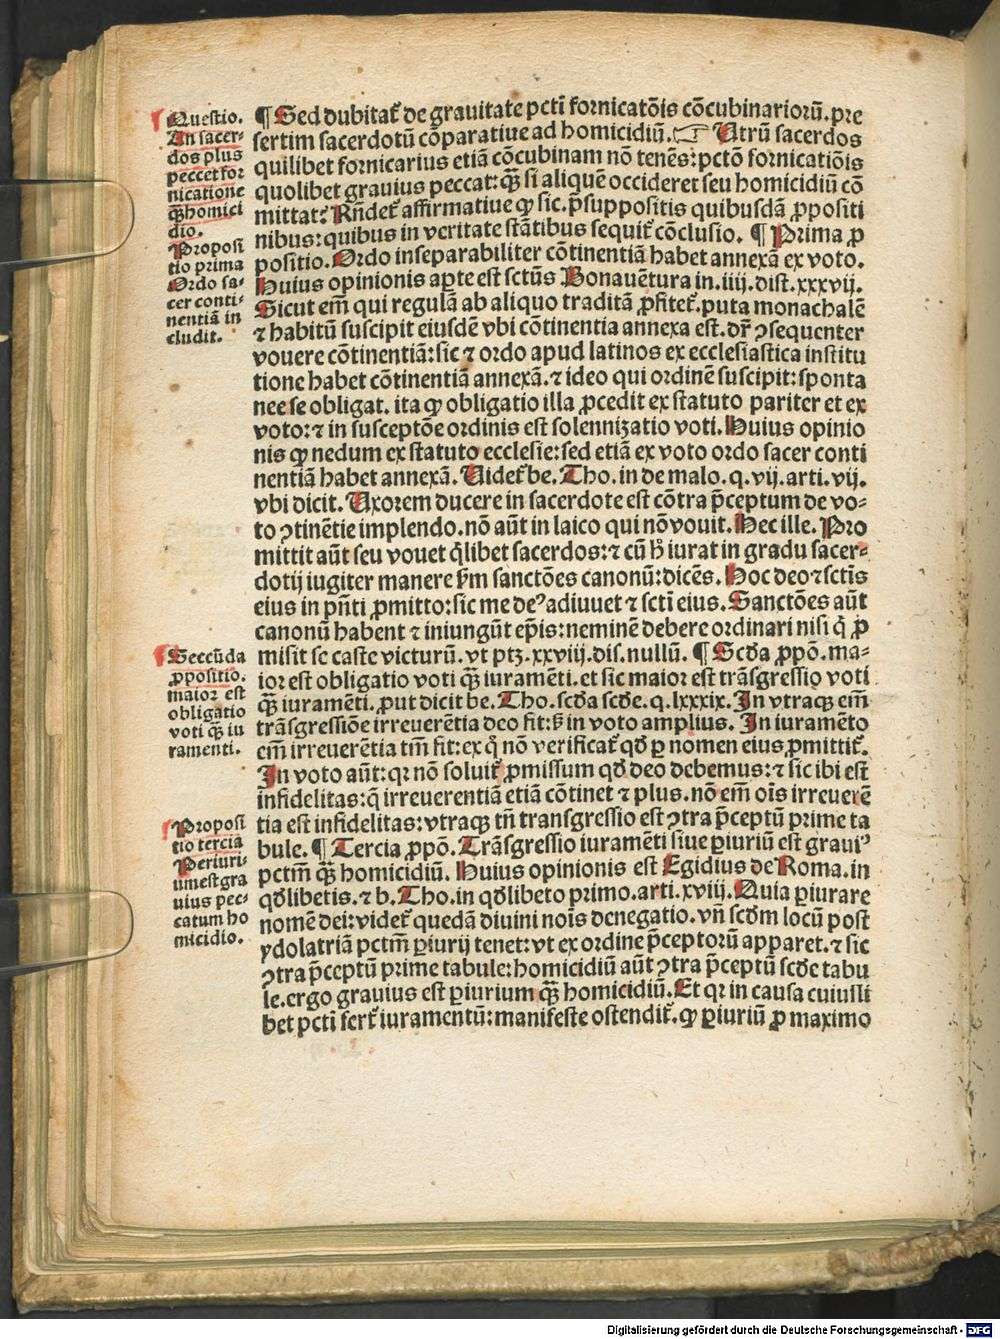 Questio.
An sacer-
dos plus
peccet for
nicatione
q̄ꝫ homici
dio.
Proposi
tio prima
Ordo sa-
cer conti-
nentiā in
cludit.
¶ Sed dubitat᷑ de grauitate pcti fornicatōis cōcubinarioꝝ̄.pre
sertim sacerdotū cōparatiue ad homicidiū.☞ Utrū sacerdos
quilibet fornicarius etiā cōcubinam nō tenēs:pctō fornicatiōis
quolibet grauius peccat:q̄ꝫ si aliquē occideret seu homicidiū cō
mittat? Rn̄det᷑ affirmatiue ꝙ sic. p̄suppositis quibusdā ꝓpositi
nibus:quibus in veritate stātibus sequit᷑ cōclusio. ¶ Prima ꝓ
positio.Ordo inseparabiliter cōtinentiā habet annexā ex voto.
Huius opinionis aꝑte est sctūs Bonauētura in.iiij.dist.xxxvij.
Sicut em̄ qui regulā ab aliquo traditā ꝓfitet᷑.puta monachalē
⁊ habitū suscipit eiusdē vbi cōtinentia annexa est.dr̄ ꝯsequenter
vouere cōtinentiā:sic ⁊ ordo apud latinos ex ecclesiastica institu
tione habet cōtinentiā annexā.⁊ ideo qui ordinē suscipit:sponta
nee se obligat. ita ꝙ obligatio illa ꝓcedit ex statuto pariter et ex
voto:⁊ in susceptōe ordinis est solennizatio voti.Huius opinio
nis ꝙ nedum ex statuto ecclesie:sed etiā ex voto ordo sacer conti
nentiā habet annexā.Uidet᷑ be.Tho.in de malo.q.vij.arti.vij.
vbi dicit.Uxorem ducere in sacerdote est cōtra p̄ceptum de vo-
to ꝯtinētie implendo.nō aūt in laico qui nō vouit.Hec ille.Pro
mittit aūt seu vouet q̄libet sacerdos:⁊ cū hͦ iurat in gradu sacer-
dotij iugiter manere ẜm sanctōes canonū:dicēs.Hoc deo ⁊ sctīs
eius in pn̄ti ꝓmitto:sic me deꝰ adiuuet ⁊ scti eius.Sanctōes aūt
canonū habent ⁊ iniungūt ep̄is:neminē debere ordinari nisi q̄ ꝓ
misit se caste victurū.vt ptꝫ.xxviij.dis.nullū. ¶ Scd̄a ꝓpō.ma-
ior est obligatio voti q̄ꝫ iuramēti.et sic maior est trāsgressio voti
q̄ꝫ iuramēti.ꝓut dicit be.Tho.scd̄a scd̄e.q.lxxxix.In vtraqꝫ em̄
trāsgressiōe irreuerētia deo fit:ẜꝫ in voto amplius. In iuramēto
em̄ irreuerētia tm̄ fit:ex q̄ nō verificat᷑ qd̄ ꝑ nomen eius ꝓmittit᷑.
In voto aūt:qꝛ nō soluit᷑ ꝓmissum qd̄ deo debemus:⁊ sic ibi est
infidelitas:q̄ irreuerentiā etiā cōtinet ⁊ plus.nō em̄ oīs irreuerē
tia est infidelitas:vtraqꝫ tn̄ transgressio est ꝯtra p̄ceptū prime ta
bule. ¶ Tercia ꝓpō. Trāsgressio iuramēti siue ꝑiuriū est grauiꝰ
pctm̄ q̄ꝫ homicidiū. Huius opinionis est Egidius de Roma.in
qd̄libetis.⁊ b.Tho.in qd̄libeto primo.arti.xviij.Quia ꝑiurare
nomē dei:videt᷑ quedā diuini noīs denegatio.vn̄ scd̄m locū post
ydolatriā pctm̄ ꝑiurij tenet:vt ex ordine p̄ceptorū apparet.⁊ sic
ꝯtra p̄ceptū prime tabule:homicidiū aūt ꝯtra p̄ceptū scd̄e tabu
le.ergo grauius est ꝑiurium q̄ꝫ homicidiū.Et qꝛ in causa cuiusli
bet pcti fert᷑ iuramentū:manifeste ostendit᷑.ꝙ ꝑiuriū ꝓ maximo
Seccūda
ꝓpositio.
maior est
obligatio
voti q̄ꝫ iu
ramenti.
Proposi
tio tercia
Periuri-
um est gra
uius pec-
catum ho
micidio.
Digitalisierung gefördert durch die Deutsche Forschungsgemeinschaft - DFG